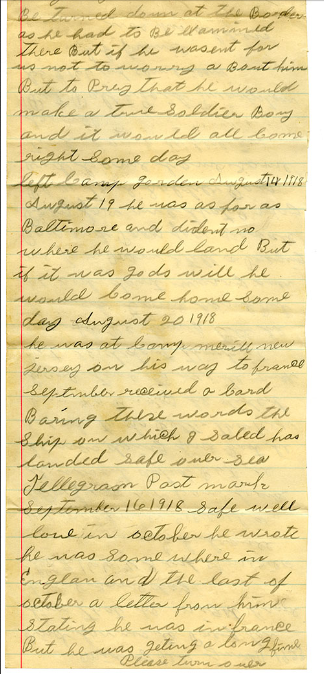 Be turned down at the Border
as he had to Be Examined
there But if he wasent for
us not to worry a Bout him
But to Pray that he would
make a true Soldier Boy
and it would all Come
right Some day
left Camp gordon August 14 1918
August 19 he was as far as
Baltimore and dident no
where he would land But
if it was gods will he
would Come home Some
day August 20 1918
he was at Camp merritt new
jersey on his way to france
September received a Card
Baring these words the
Ship on which I Saled has
landed Safe over Sea
Tellegram Post mark
September 16 1918 Safe well
love in october he wrote
he was Some where in
Englan and the last of
october a letter from him
Stating he was in france
But he was geting a long fine
Please turn over